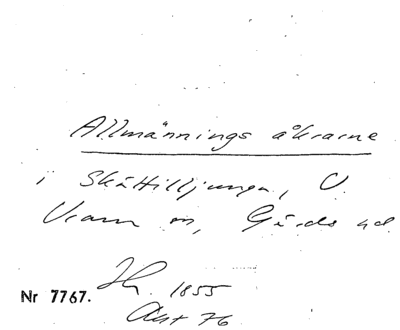 Allmännings åkrarne
i Skättilljunga, V.
Vram sn, Gärds hd.
Nr 7767. 1855
Akt 76